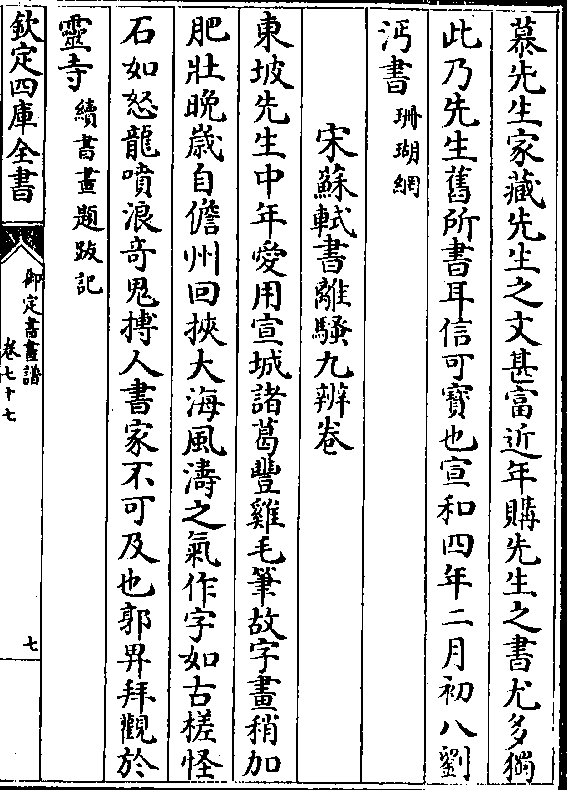 慕先生家藏先生之文甚富近年購先生之書尤多獨
此乃先生舊所書耳信可寳也宣和四年二月初八劉
沔書 珊瑚網
宋蘇軾書離騷九辨卷
東坡先生中年愛用宣城諸葛豐雞毛筆故字畫稍加
肥壯晚歳自儋州回挾大海風濤之氣作字如古槎怪
石如怒龍噴浪奇鬼搏人書家不可及也郭畀拜觀於
靈寺 續書畫題跋記
欽定四庫全書
御定書畫譜
卷七十七
七